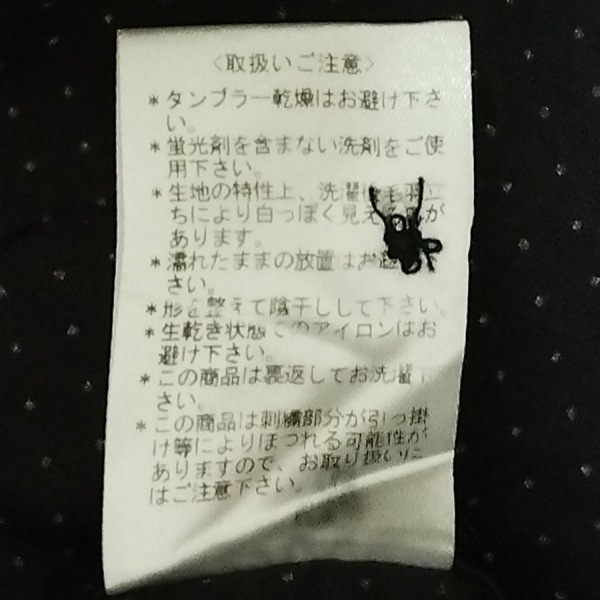 〈取扱いご注意〉
＊タンブラー乾燥はお避け下さ
い。
＊蛍光剤を含まない洗剤をご使
用下さい。
＊生地の特性上、洗濯 毛羽立
ちにより白っぽく見える が
あります。
＊濡れたままの放置はお避
さい。
＊形を整えて陰干しして下さい。
＊生乾き状態 のアイロンはお
避け下さい。
＊この商品は裏返してお洗濯
さい。
＊この商品は刺繍部分が引っ掛
け等によりほつれる可能性が
ありますので、お取り扱いに
はご注意下さい。